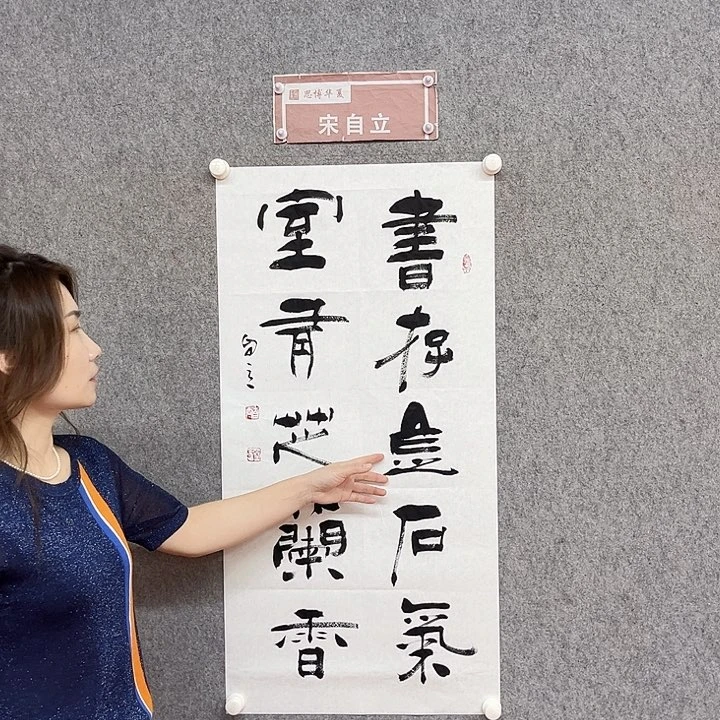 思博华夏
宋自立
書存金石氣
室有芝蘭香
自立